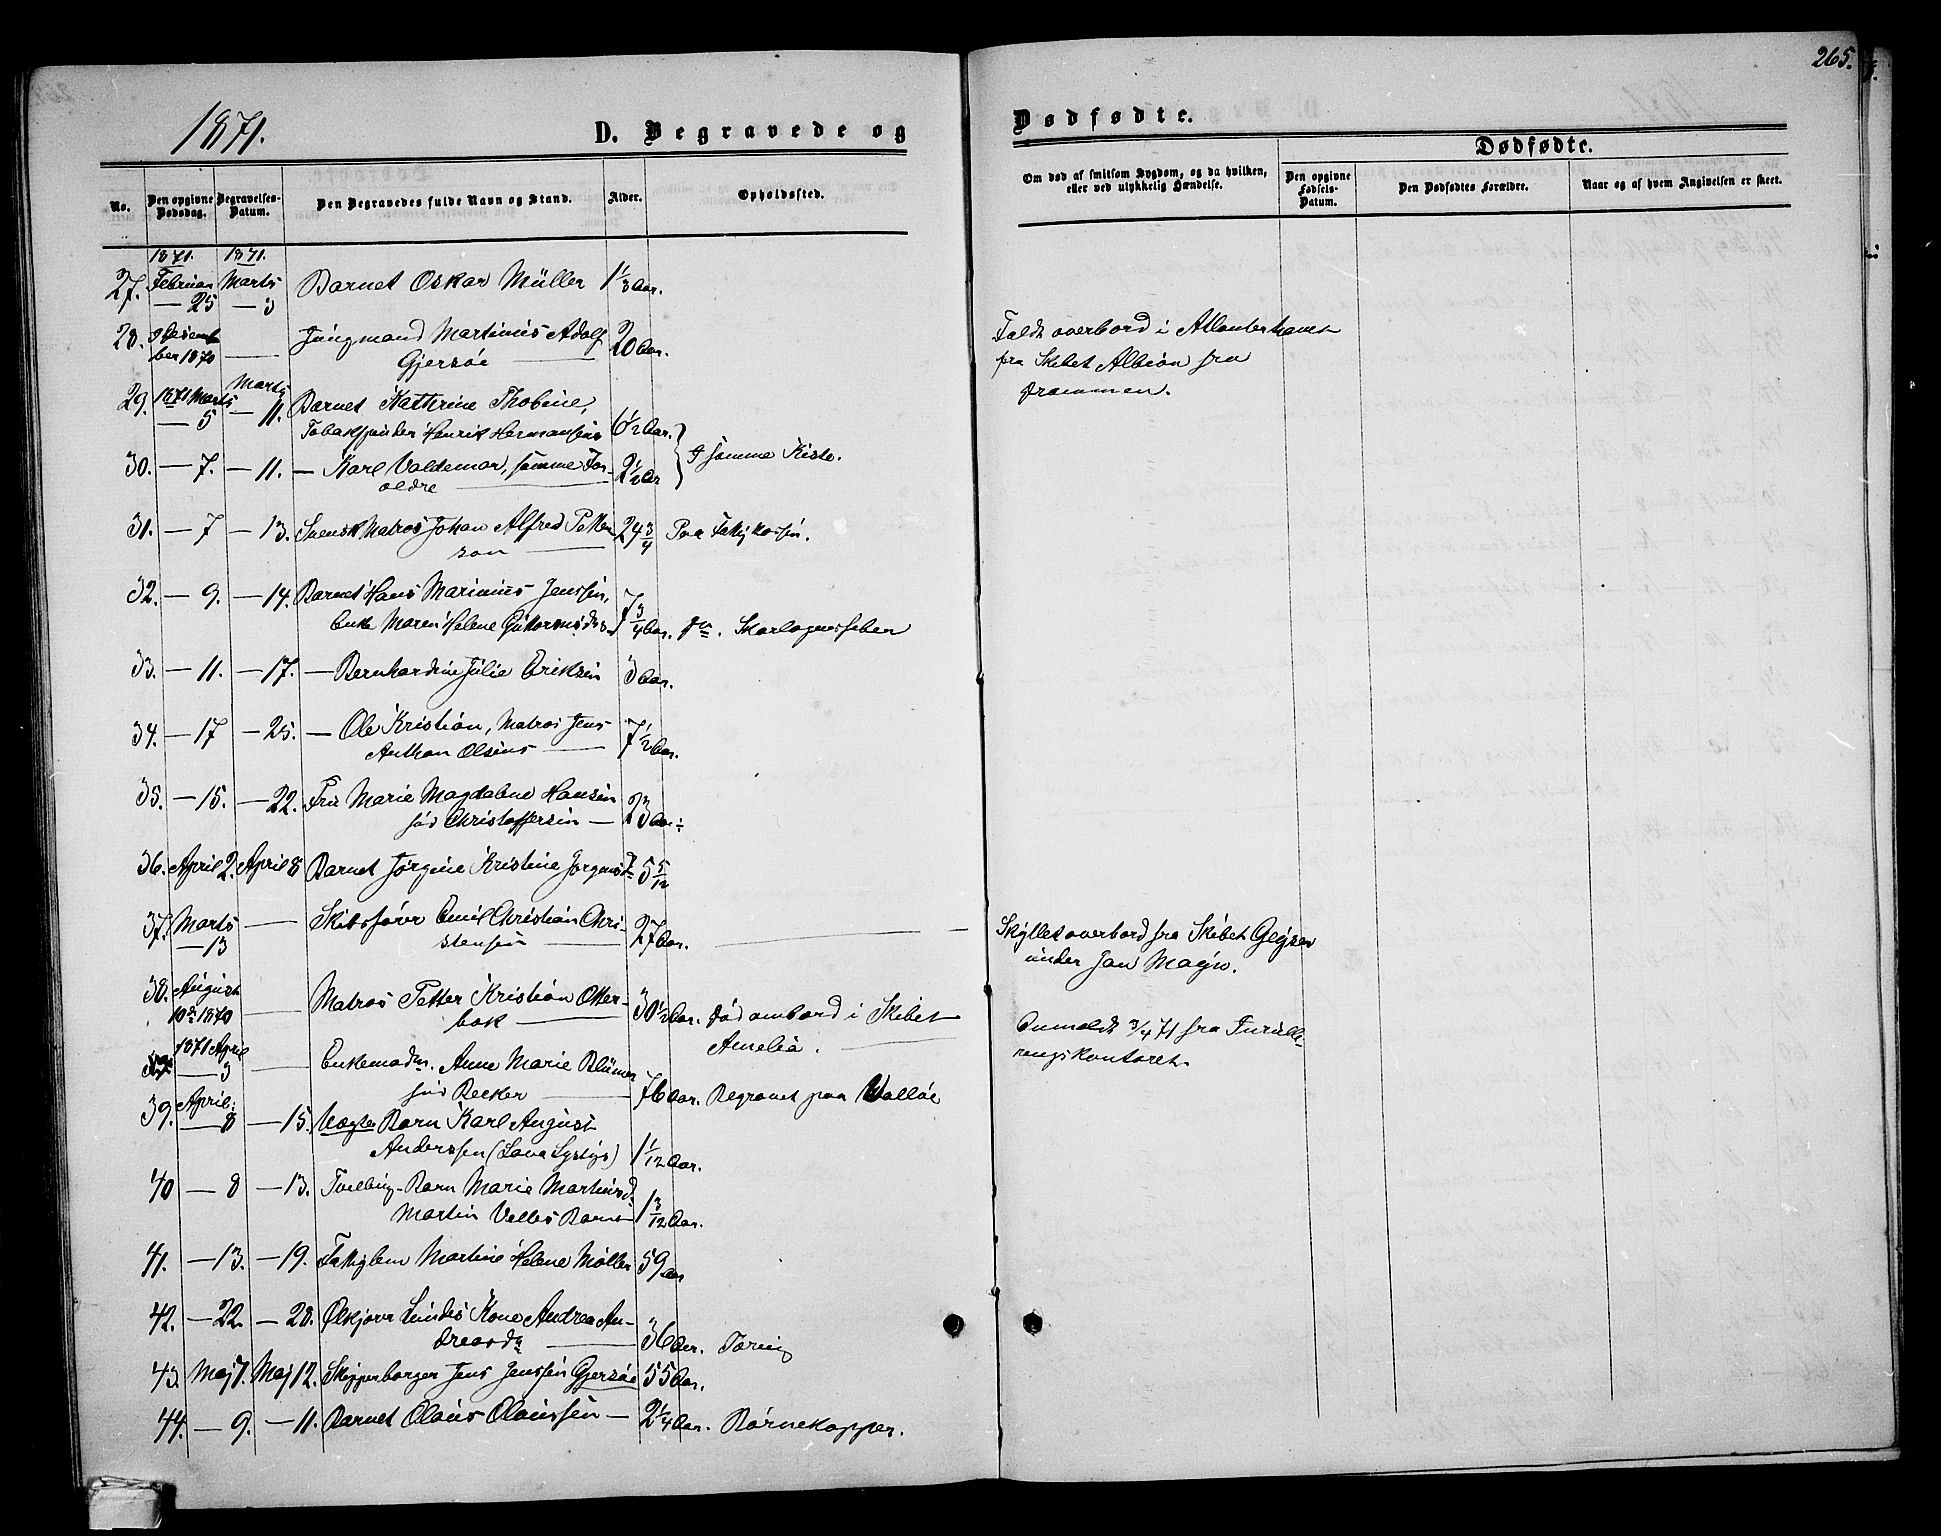 265.
1871.
D. Begravede og
Dødfødte.
No.
Den opgivne Dødsdag.
Begravelses-Datum.
Den Begravedes fulde Navn og Stand.
Alder.
Opholdssted.
Om død af smitsom Sygdom, og da hvilken, eller ved ulykkelig Hændelse.
Dødfødte.
Den opgivne Fødsels-Datum.
Den Dødfødtes Forældre.
Naar og af hvem Angivelsen er skeet.
1871. 1871.
27. Februar Marts Barnet Oskar Müller 1 1/3 Aar.
— 25 — 3
28. Desem- Jüngmand Martinus Adolf 20 Aar. Faldt overbord i Atlanterhavet
ber 1870 — Gjersöe — fra Skibet Albion fra
Drammen.
29. 1871 Marts Marts Barnet Kathrine Thobine, 6 1/2 Aar.
— 5 — 11. Tobakspinder Henrik Hermansens
30. — 7. — 11. — Karl Valdemar, samme For- 2 1/2 Aar I samme Kiste.
ældre —
31. — 7 — 13. Svensk Matros Johan Alfred Petter 24 3/4 Paa
son —
32. — 9. — 14. Barnet Hans Marinius Jenssen, 7 3/4 Aar.
Enke Maren Helene Skarlagensfeber
33. — 11. — 17. — Bernhardine Julie Eriksen 3 Aar.
34. — 17 — 25. — Ole Kristian, Matros Jens 7 1/2 Aar.
Anthon Olsens —
35. — 15. — 22. Fru Marie Magdalene Hansen 23 Aar.
fød Christoffersen —
36. April 2. April 8 Barnet Jörgine Kristine Jörgensd 5 5/12
37. Marts — Skibsfører Emil Christian Chri- 27 Aar. — Skyllet overbord fra Skibet Geyser
— 13 stensen — under Jan Mayn.
38. August — Matros Petter Kristian Otter- 30 1/2 Aar. Død ombord i Skibet
10de 1870 bok — Amelia. — Anmeldt 3/4 71 fra Inrulle-
ringskontoret.
1871 April — Enkemadm. Anne Marie Blümer
— 3 fød Becker — 76 Aar. Begravet paa Valløe
39. April:
— 8 — 15. Uægte Barn Karl August
Anderssen 1 1/12 Aar.
40 — 8 — 13. Tvilling-Barn Marie Martinsd. 1 3/12 Aar.
Martin Velles Barn
41. — 13. — 19. Fattiglem Martine Helene Møller 59 Aar
42. — 22 — 28. Ølkjører Lundes Kone Andrea An- 36 Aar. Tæring
dreasdr —
43. Maj 7. Maj 12. Skipperborger Jens Jenssen Gjersöe 55 Aar.
44. — 9. — 11. Barnet Olaus Olaussen — 2 1/4 Aar. Børnekopper.